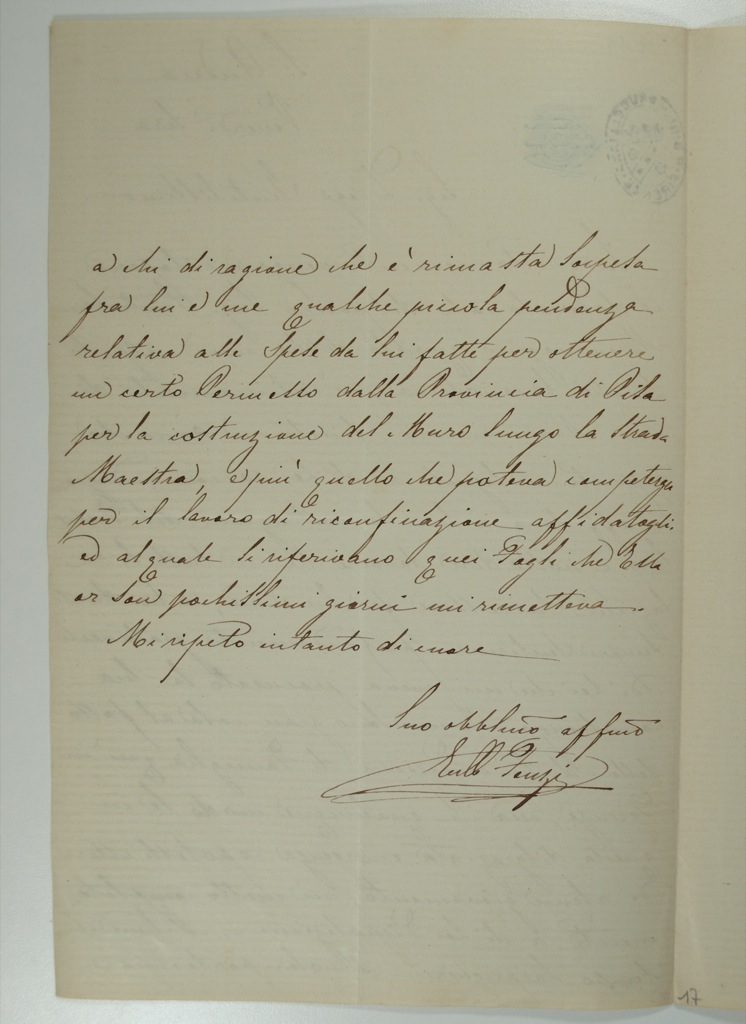 a chi di ragione che è rimasta sospesa
fra lui e me qualche piccola pendenza
relativa alle Spese da lui fatte per ottenere
un certo Permesso dalla Provincia di Pisa
per la costruzione del Muro lungo la Strada
Maestra, e più quello che poteva competergli
per il lavoro di riconfinazione affidatogli.
ed al quale si riferivano quei Fogli che Ella
or son pochissimi giorni mi rimetteva.
Mi ripeto intanto di cuore
Suo obblmo affmo
Fenzi
17